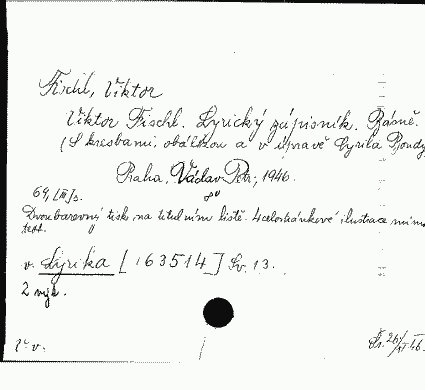 Fischl, Viktor
Viktor Fischl. Lyrický zápisník. Básně.
(S kresbami, obálkou a v úpravě Cyrila Boudy
Praha, Václav Petr, 1946.
69, [III] s.
Dvoubarevný tisk na titulním listě. 4 celostránkové ilustrace mimo
text.
v. Lyrika [163514] Sv. 13.
2 výt.